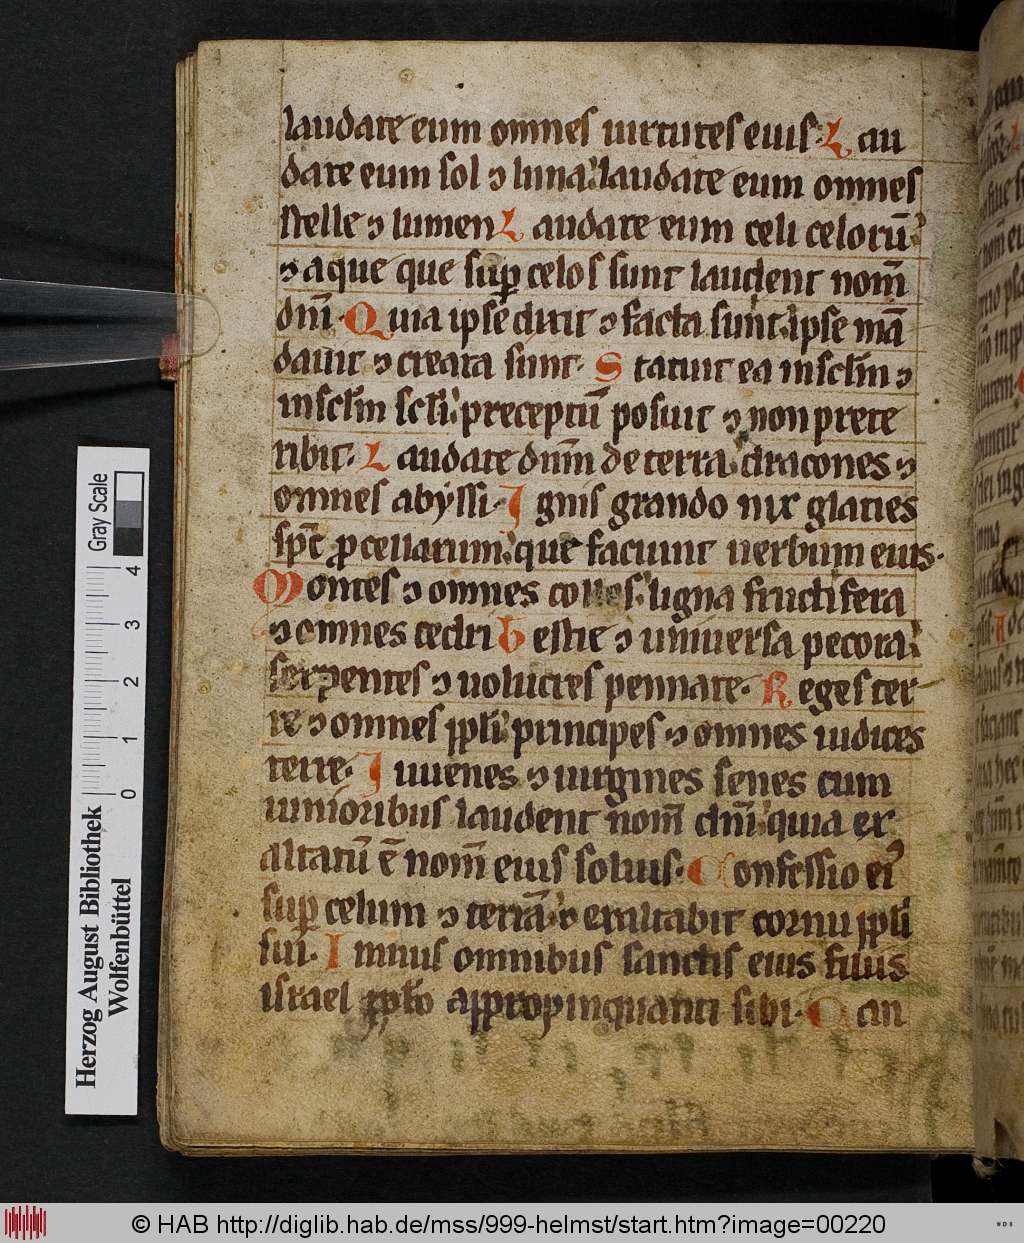 laudate eum omnes uirtutes eius. Lau
date eum sol ⁊ luna. laudate eum omnes
stelle ⁊ lumen Laudate eum celi celorū
⁊ aque que sup celos sunt laudent nom̄
dn̄i. Quia ipse dixit ⁊ facta sunt. ipse mā
dauit ⁊ creata sunt. Statuit ea in sclm̄ ⁊
in sclm̄ scli. preceptū posuit ⁊ non prete
ribit. Laudate dnm̄ de terra. dracones ⁊
omnes abyssi. Ignis grando nix glaties
spc̄ pcellarum. que faciunt uerbum eius.
Montes ⁊ omnes colles. ligna fructifera
⁊ omnes cedri bestie ⁊ uniuersa pecora.
serpentes ⁊ uolucres pennate. Reges ter
re ⁊ omnes ppli. principes ⁊ omnes iudices
terre. Iuuenes ⁊ uirgines senes cum
iunioribus laudent nom̄ dn̄i. quia ex
altatū ē nom̄ eius solius. Confessio ei
sup celum ⁊ terrā. ⁊ exaltabit cornu ppli
sui. Imnus omnibus sanctis eius filiis
israel pplo appropinquanti sibi. Can
Gray Scale
4 3 2 1 0
Herzog August Bibliothek
Wolfenbüttel
© HAB http://diglib.hab.de/mss/999-helmst/start.htm?image=00220